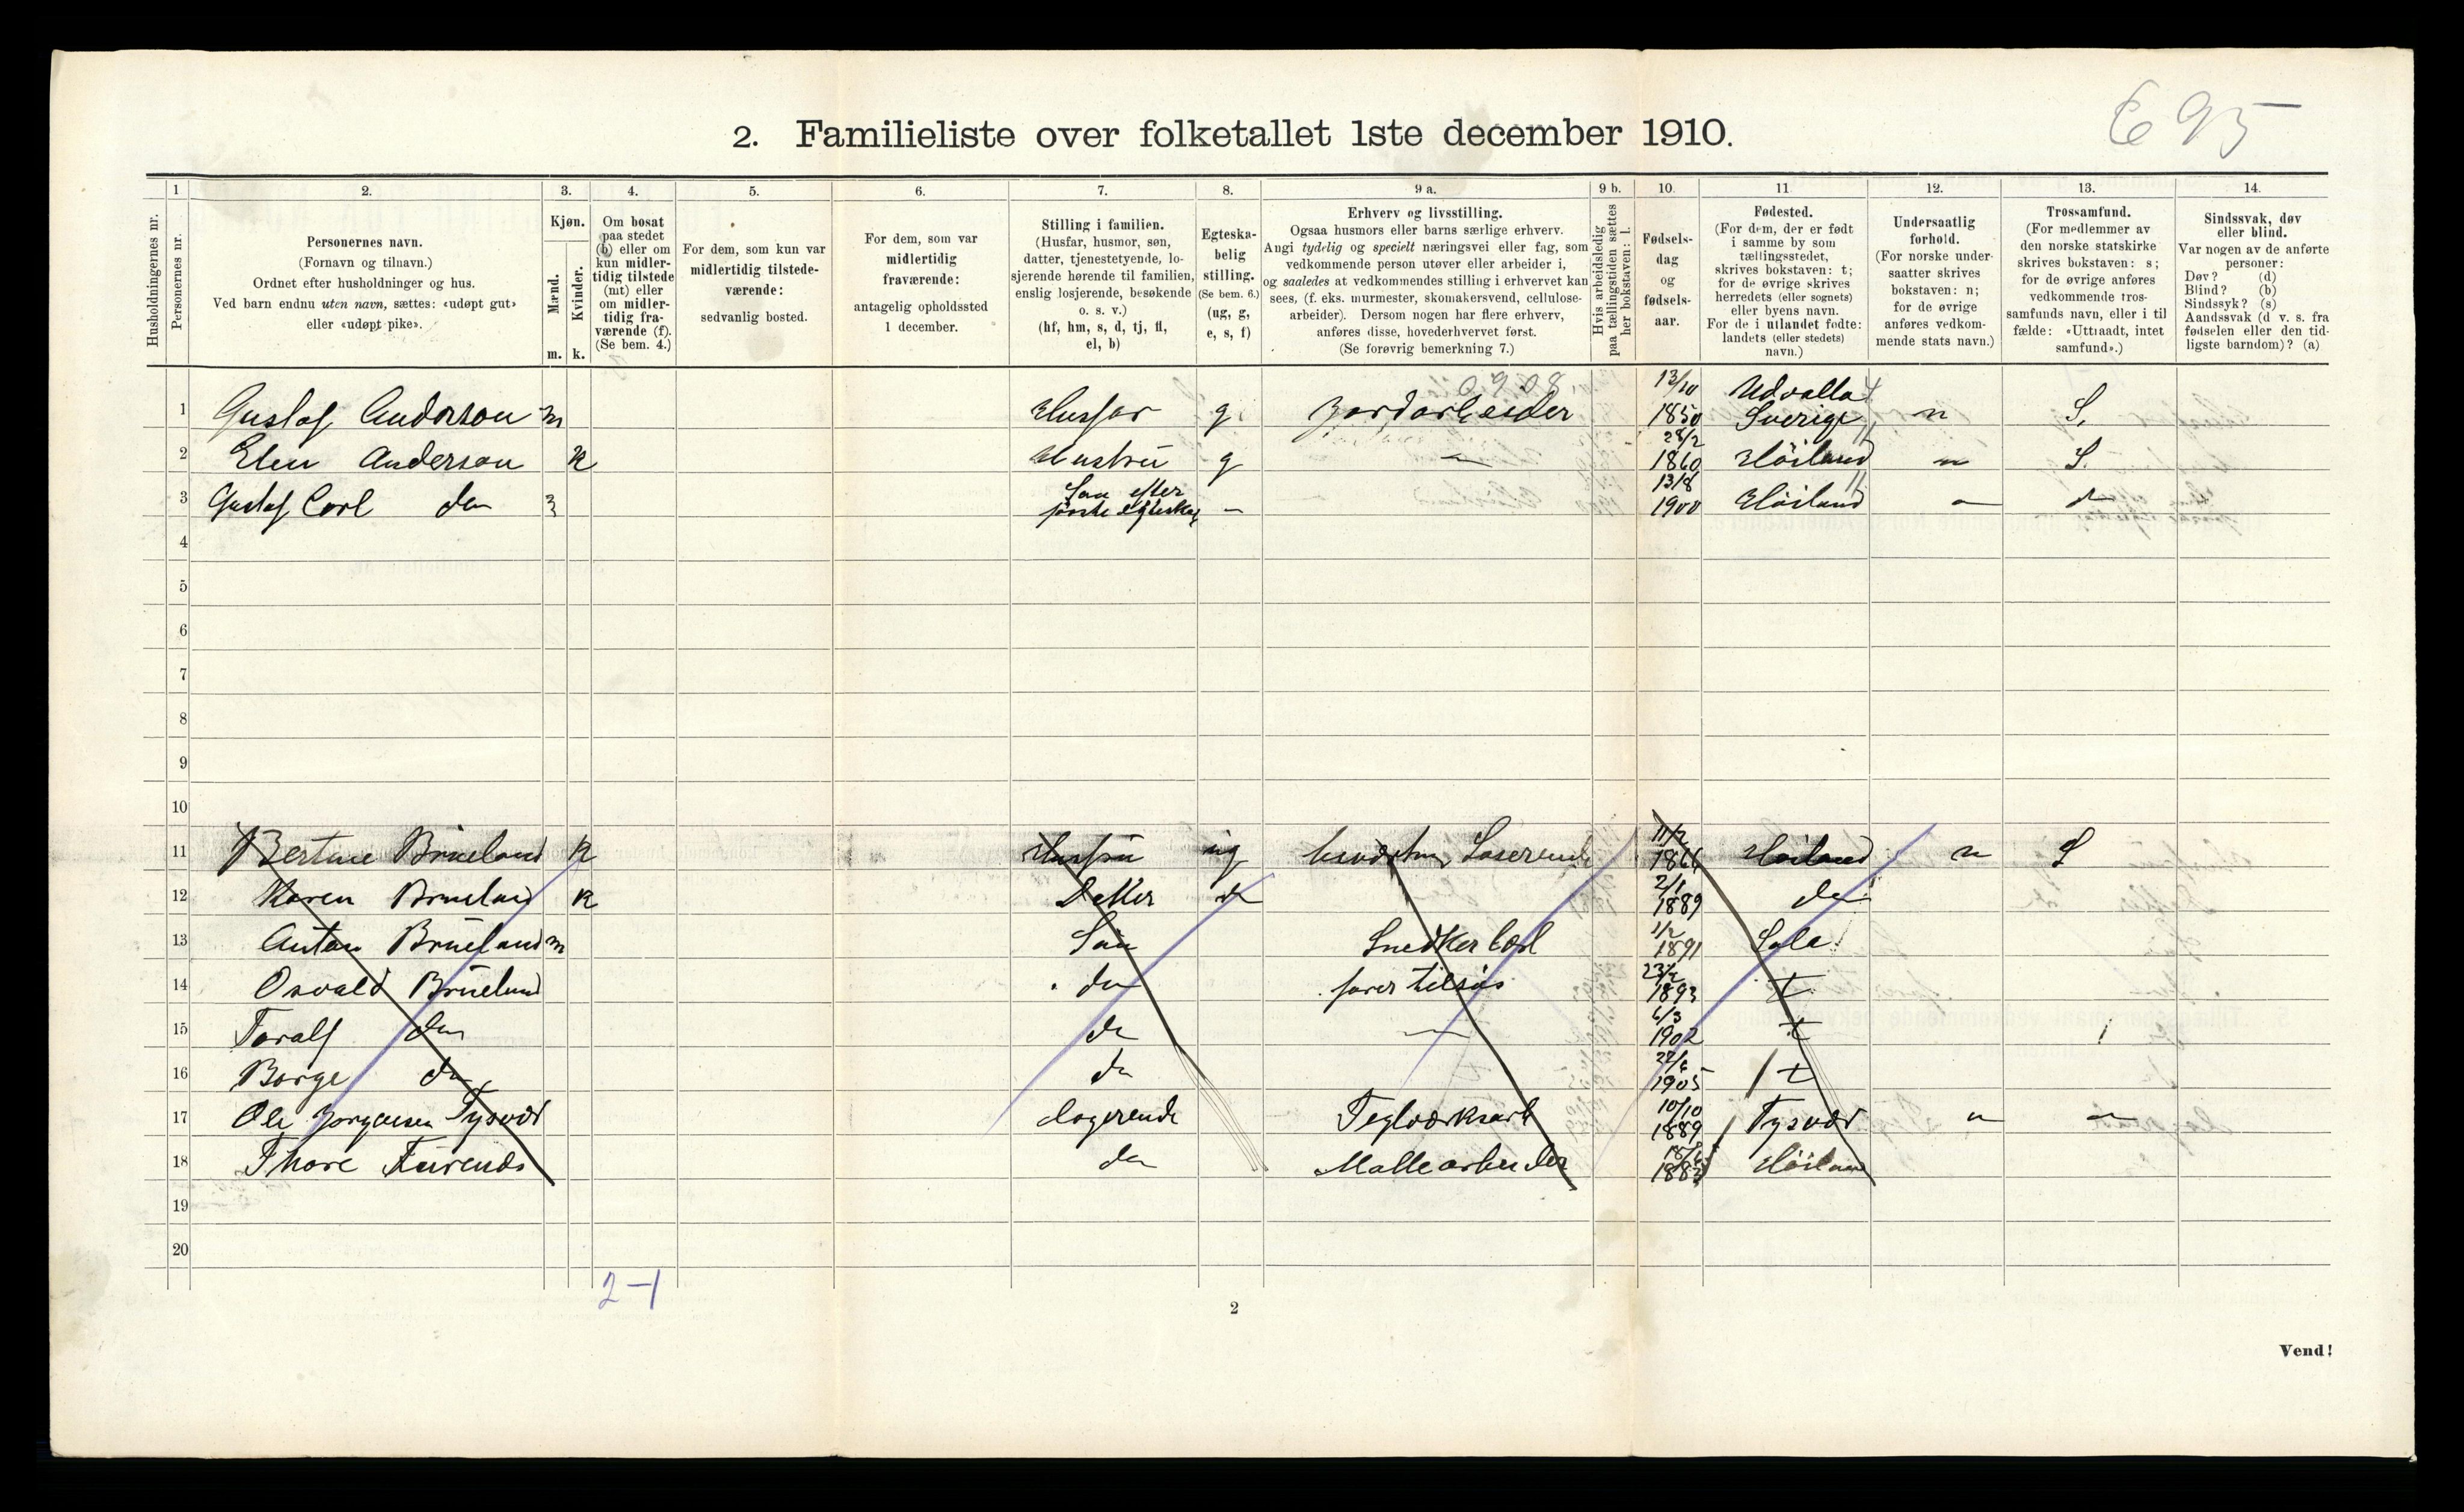 E 95
2. Familieliste over folketallet 1ste december 1910.
1 2. 3. 4. 5. 6. 7. 8. 9 a. 9 b. 10. 11 12. 13. 14.
Husholdningernes nr.
Personernes nr.
Personernes navn.
(Fornavn og tilnavn.)
Ordnet efter husholdninger og hus.
Ved barn endnu uten navn, sættes: «udøpt gut»
eller «udøpt pike».
Kjøn.
Mænd.
Kvinder.
m. k.
Om bosat
paa stedet
(b) eller om
kun midler-
tidig tilstede
(mt) eller
om midler-
tidig fra-
værende (f).
(Se bem. 4.)
For dem, som kun var
midlertidig tilstede-
værende:
sedvanlig bosted.
For dem, som var
midlertidig
fraværende:
antagelig opholdssted
1 december.
Stilling i familien.
(Husfar, husmor, søn,
datter, tjenestetyende, lo-
sjerende hørende til familien,
enslig losjerende, besøkende
o. s. v.)
(hf, hm, s, d, tj, fl,
el, b)
Egteska-
belig
stilling.
(Se bem. 6.)
(ug, g,
e, s, f)
Erhverv og livsstilling.
Ogsaa husmors eller barns særlige erhverv.
Angi tydelig og specielt næringsvei eller fag, som
vedkommende person utøver eller arbeider i,
og saaledes at vedkommendes stilling i erhvervet kan
sees, (f. eks. murmester, skomakersvend, cellulose-
arbeider). Dersom nogen har flere erhverv,
anføres disse, hovederhvervet først.
(Se forøvrig bemerkning 7.)
Hvis arbeidsledig
paa tællingstiden sættes
her bokstaven: l.
Fødsels-
dag
og
fødsels-
aar.
Fødested.
(For dem, der er født
i samme by som
tællingsstedet,
skrives bokstaven: t;
for de øvrige skrives
herredets (eller sognets)
eller byens navn.
For de i utlandet fødte:
landets (eller stedets)
navn.)
Undersaatlig
forhold.
(For norske under-
saatter skrives
bokstaven: n;
for de øvrige
anføres vedkom-
mende stats navn.)
Trossamfund.
(For medlemmer av
den norske statskirke
skrives bokstaven: s;
for de øvrige anføres
vedkommende tros-
samfunds navn, eller i til
fælde: «Uttraadt, intet
samfund».)
Sindssvak, døv
eller blind.
Var nogen av de anførte
personer:
Døv? (d)
Blind? (b)
Sindssyk? (s)
Aandssvak (d v. s. fra
fødselen eller den tid-
ligste barndom)? (a)
0908.
1 Gustaf Anderson m Husfar g. Jordarbeider 13/10 1850 Udvalla Sverige n S.
2 Elen Anderson k Hustru g — 28/2 1860 Höiland n S.
3 Gustaf Carl do m Søn efter første Egteskap — 13/8 1900 Höiland
4
5
6
7
8
9
10
11 Bertine Brueland k Hustru ug 11/2 1866 Höiland n S
12 Karen Brueland k Datter do 2/1 1889 do
13 Anton Brueland m Søn Snedker 1/2 1891 Sola
14 Osvald Brueland do farer tilsøs 23/2 1893 t
15 Toralf do do — 6/3 1902 t
16 Borge do do 22/6 1905 t
17 Ole Jørgensen Tysvær logerende Teglværksarb 10/10 1889 Tysvær n
18 Thore do 1883 Höiland
19
20
2-1
2
Vend!